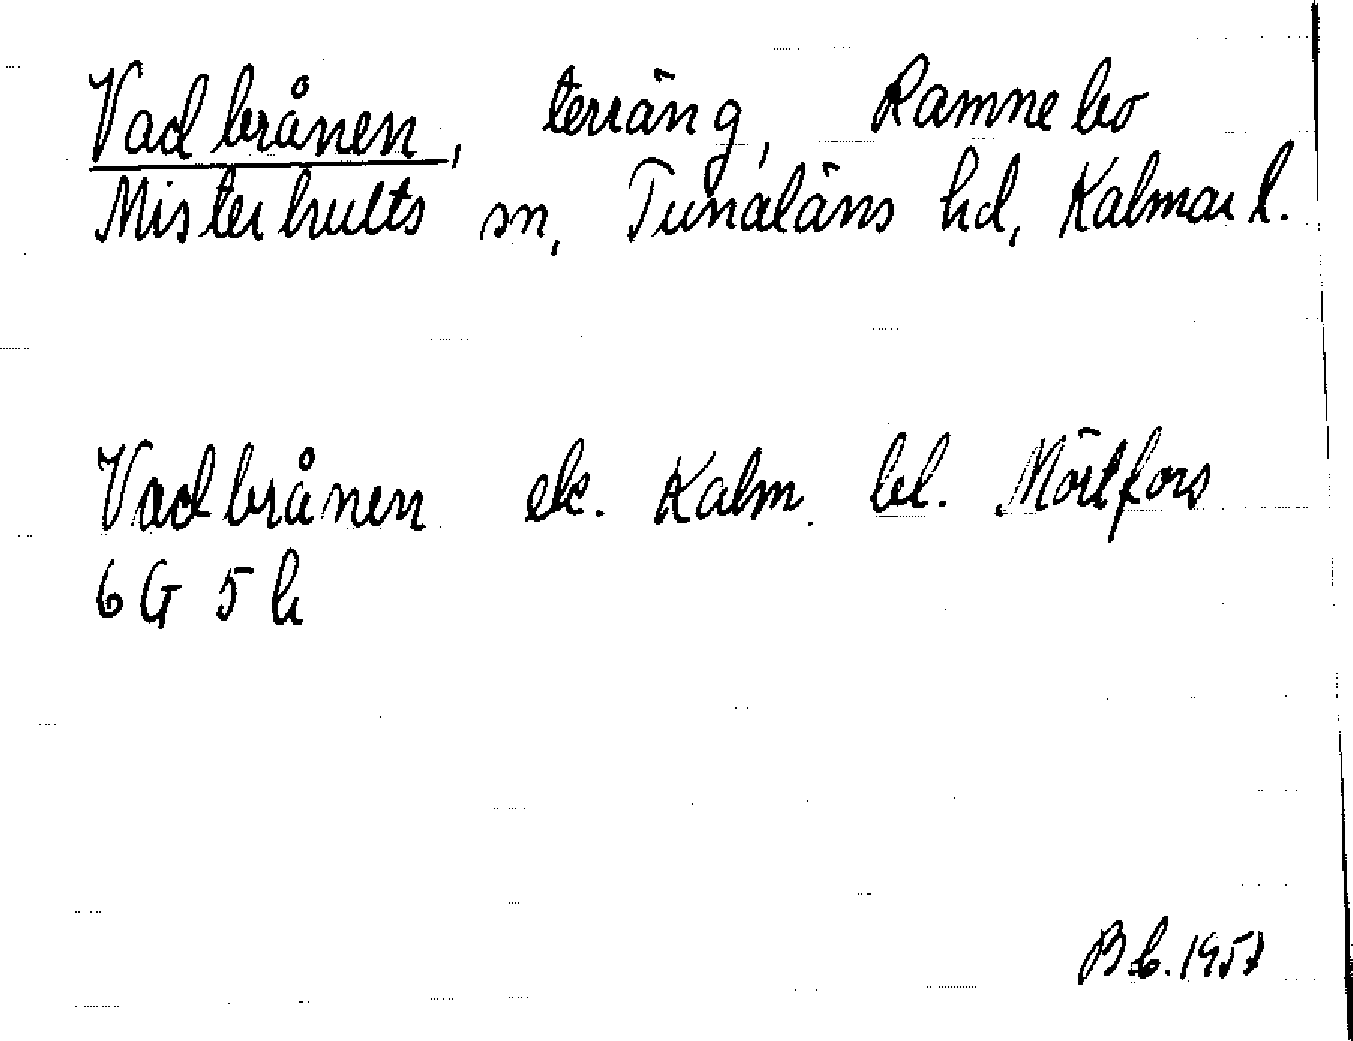 Vadbrånen, terräng, Ramnebo
Misterhults sn, Tunaläns hd, Kalmar l.
Vadbrånen ek. Kalm. bl. Mörtfors
6 G 5 h
B b. 1957